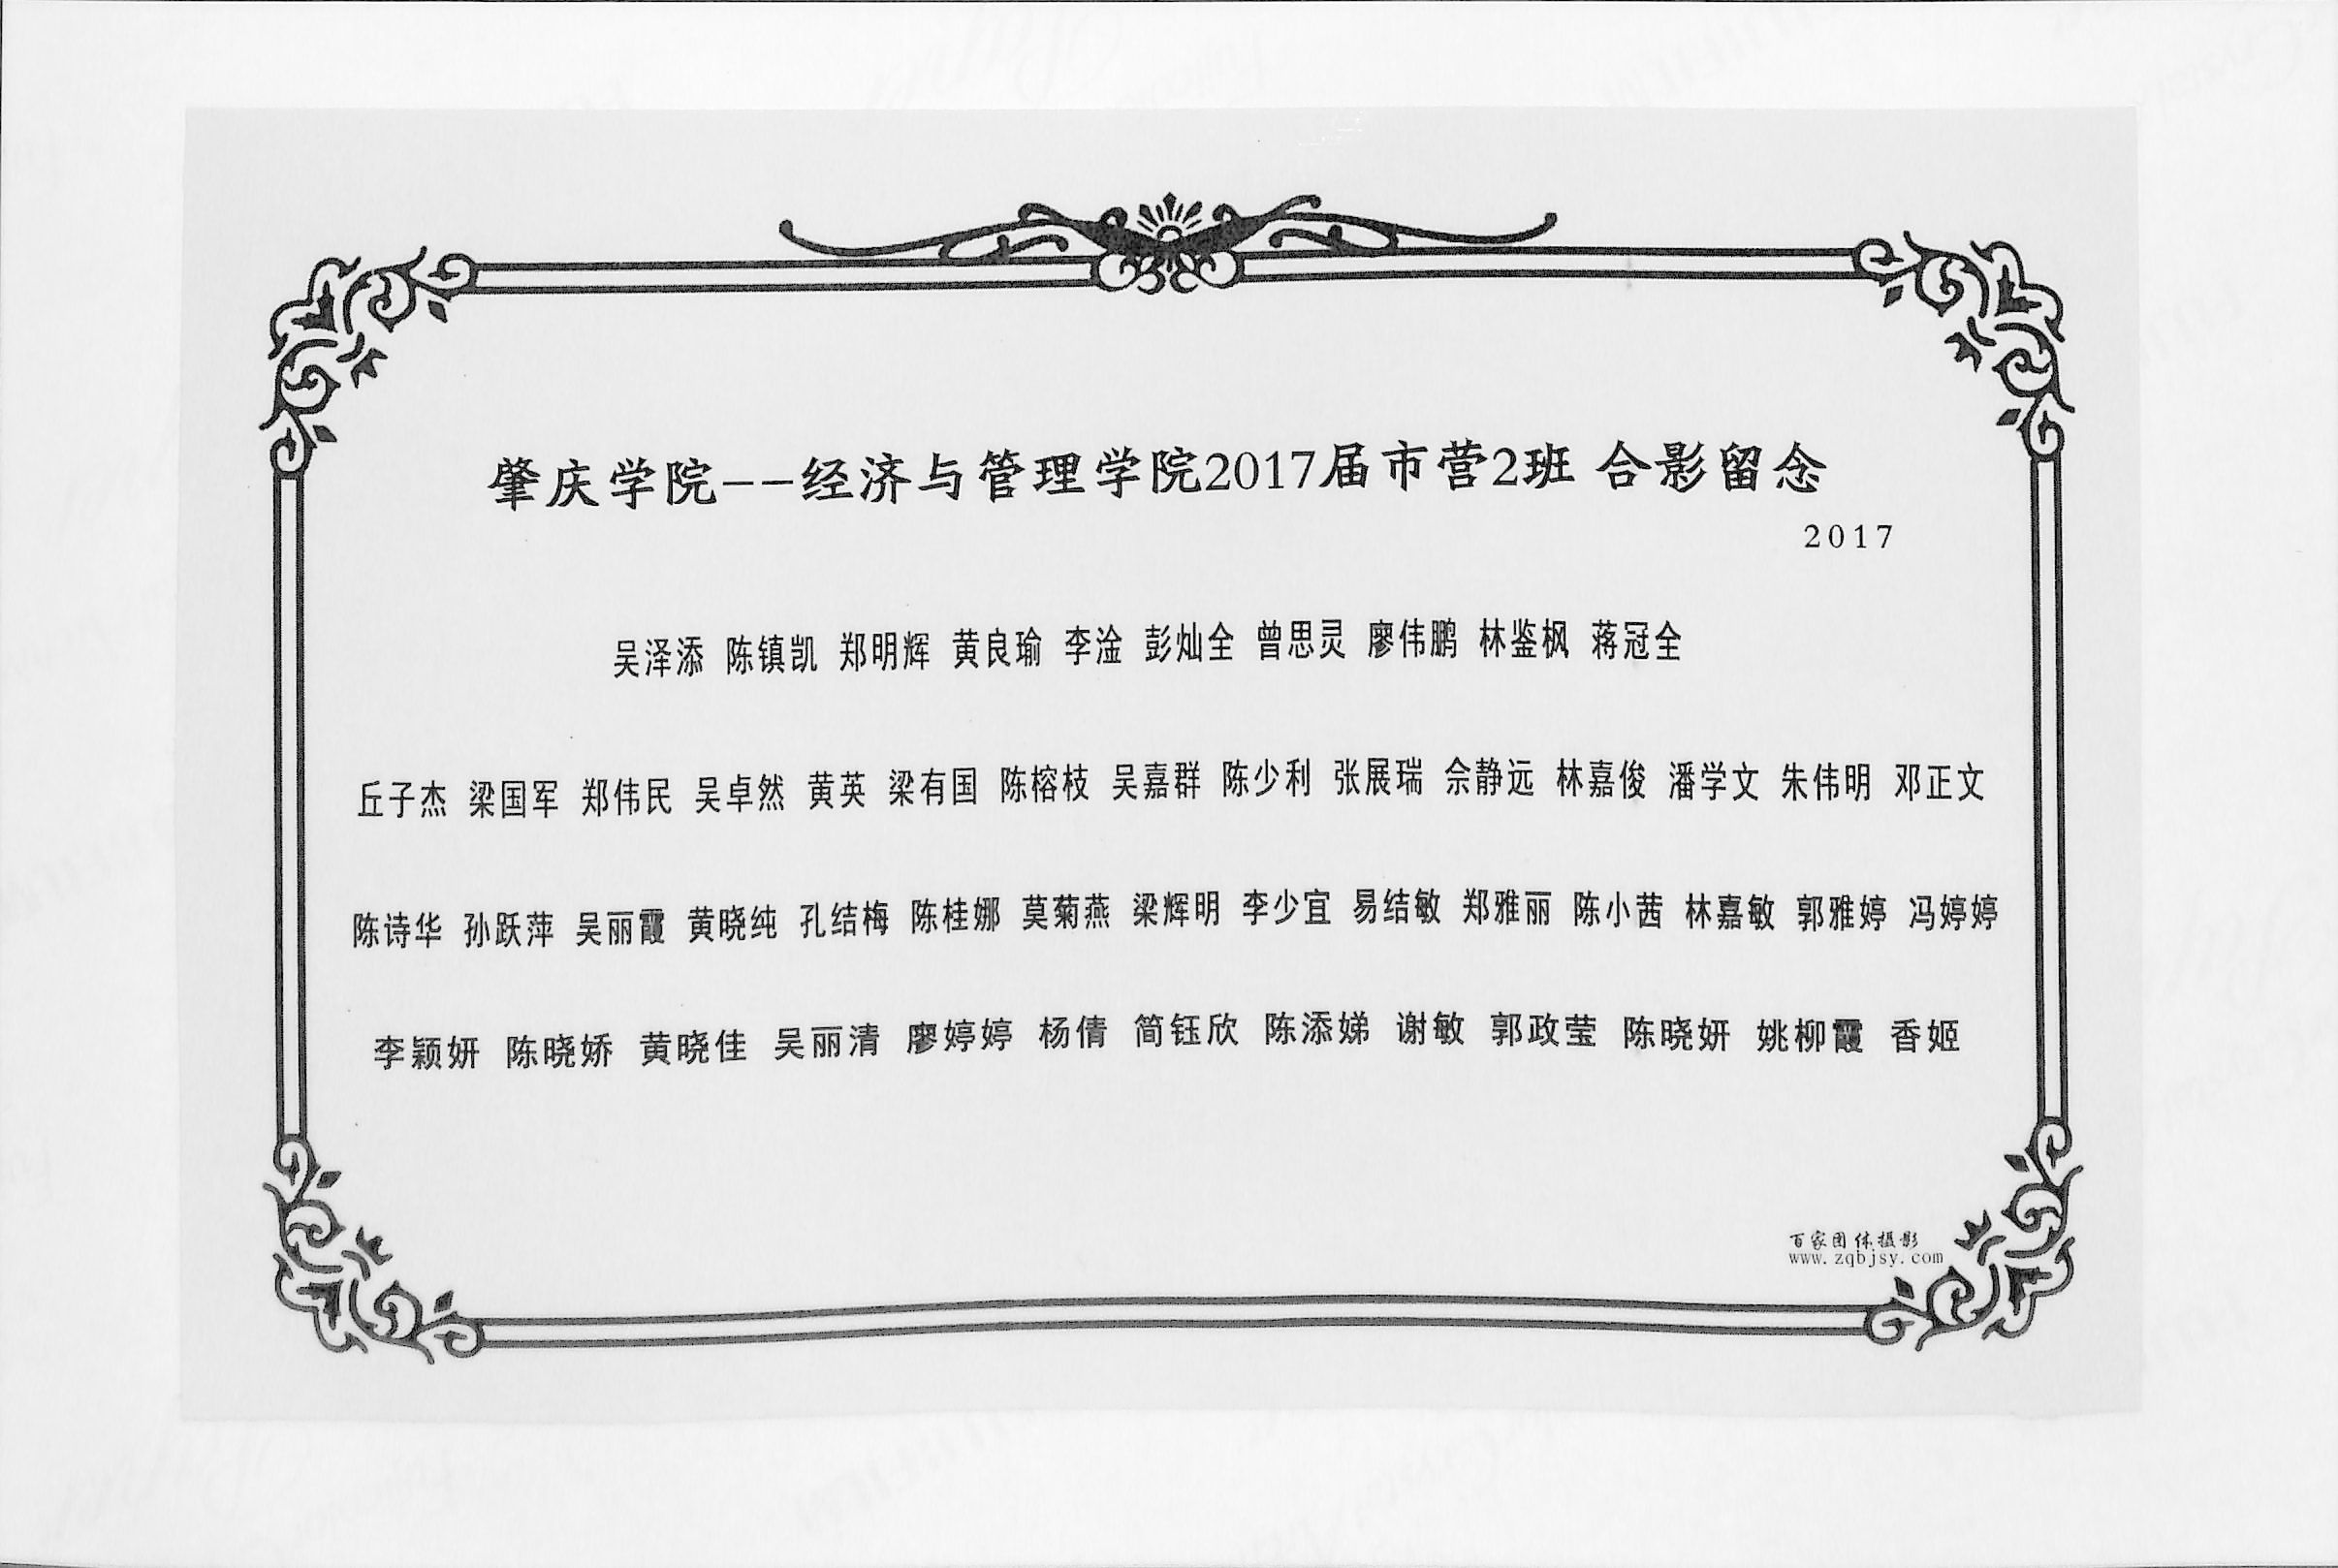 肇庆学院--经济与管理学院2017届市营2班 合影留念
2017
吴泽添 陈镇凯 郑明辉 黄良瑜 李淦 彭灿全 曾思灵 廖伟鹏 林鉴枫 蒋冠全
丘子杰 梁国军 郑伟民 吴卓然 黄英 梁有国 陈榕枝 吴嘉群 陈少利 张展瑞 佘静远 林嘉俊 潘学文 朱伟明 邓正文
陈诗华 孙跃萍 吴丽霞 黄晓纯 孔结梅 陈桂娜 莫菊燕 梁辉明 李少宜 易结敏 郑雅丽 陈小茜 林嘉敏 郭雅婷 冯婷婷
李颖妍 陈晓娇 黄晓佳 吴丽清 廖婷婷 杨倩 简钰欣 陈添娣 谢敏 郭政莹 陈晓妍 姚柳霞 香姬
百家团体摄影
www.zqbjsy.com